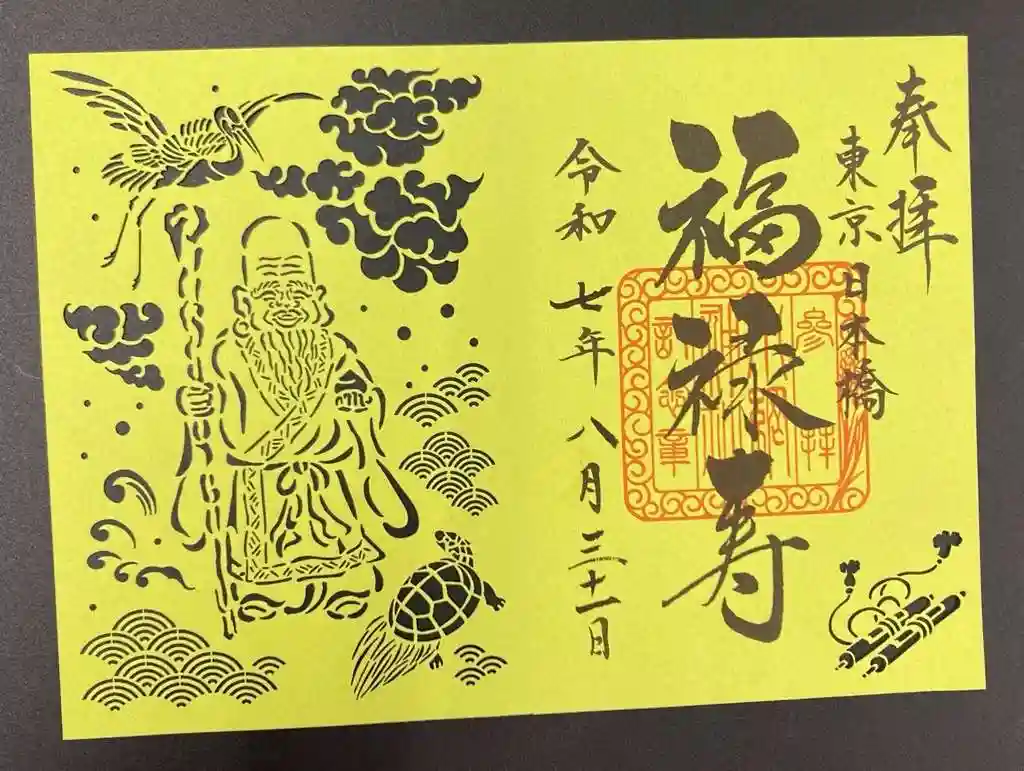 奉拝
東京 日本橋
福禄寿
參拝
記念章
令和七年八月三十一日